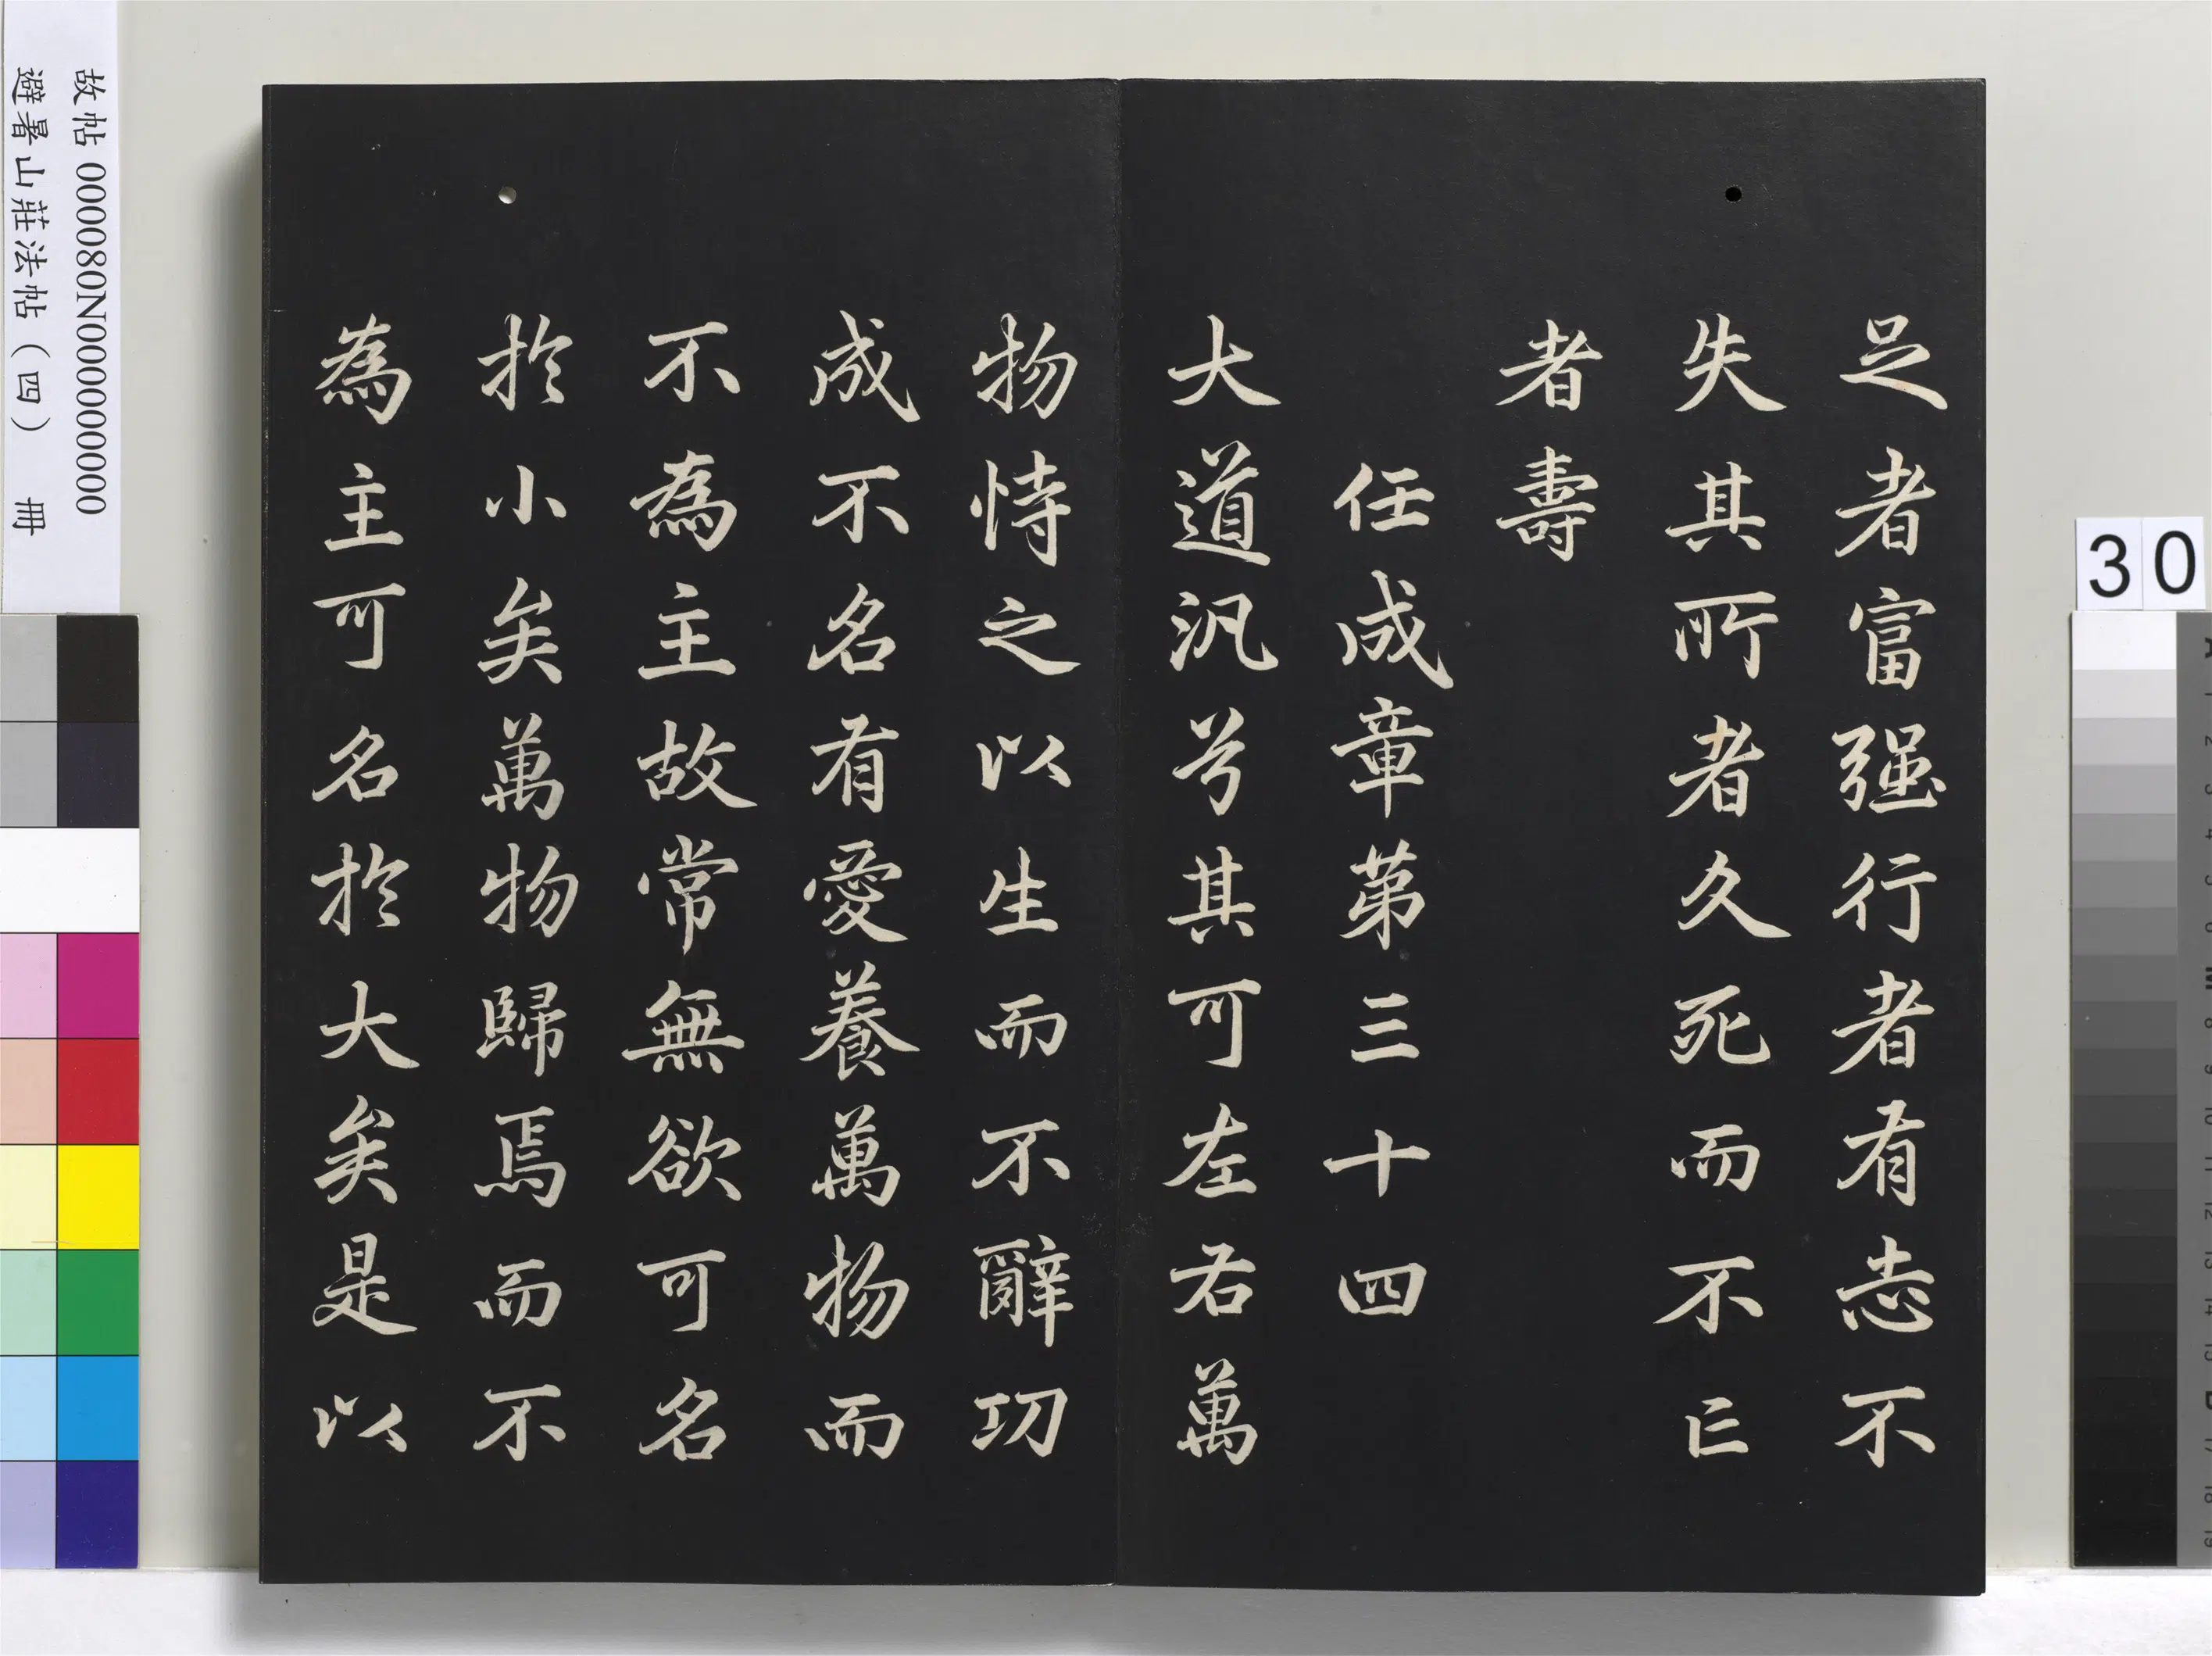 足者富强行者有志不
失其所者久死而不已
者壽
任成章第三十四
大道汎兮其可左右萬
物恃之以生而不辭功
成不名有愛養萬物而
不為主故常無欲可名
於小矣萬物歸焉而不
為主可名於大矣是以
故帖 000080N000000000
避暑山莊法帖（四） 冊
30